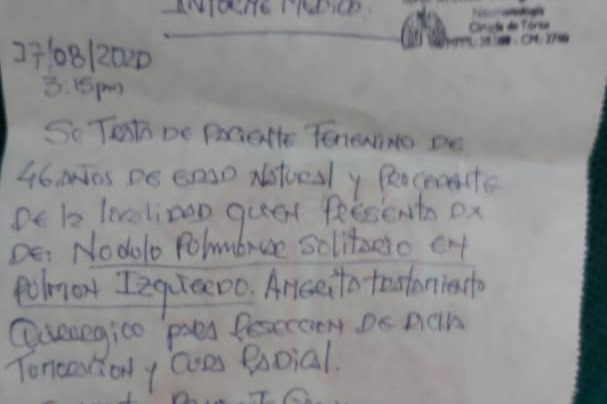 INFORME MEDICO.
Neumonología
Cirugía de Tórax
27/08/2020
3:15pm
Se Trata De Paciente Femenino De
46 Años De Edad Natural y Procedente
De la localidad quien Presenta Dx
De: Nodolo Polmonar Solitario en
Pulmon Izquierdo. Amerita tratamiento
Quirurgico para Reseccion De Dicha
Tumoracion y Cura Radical.